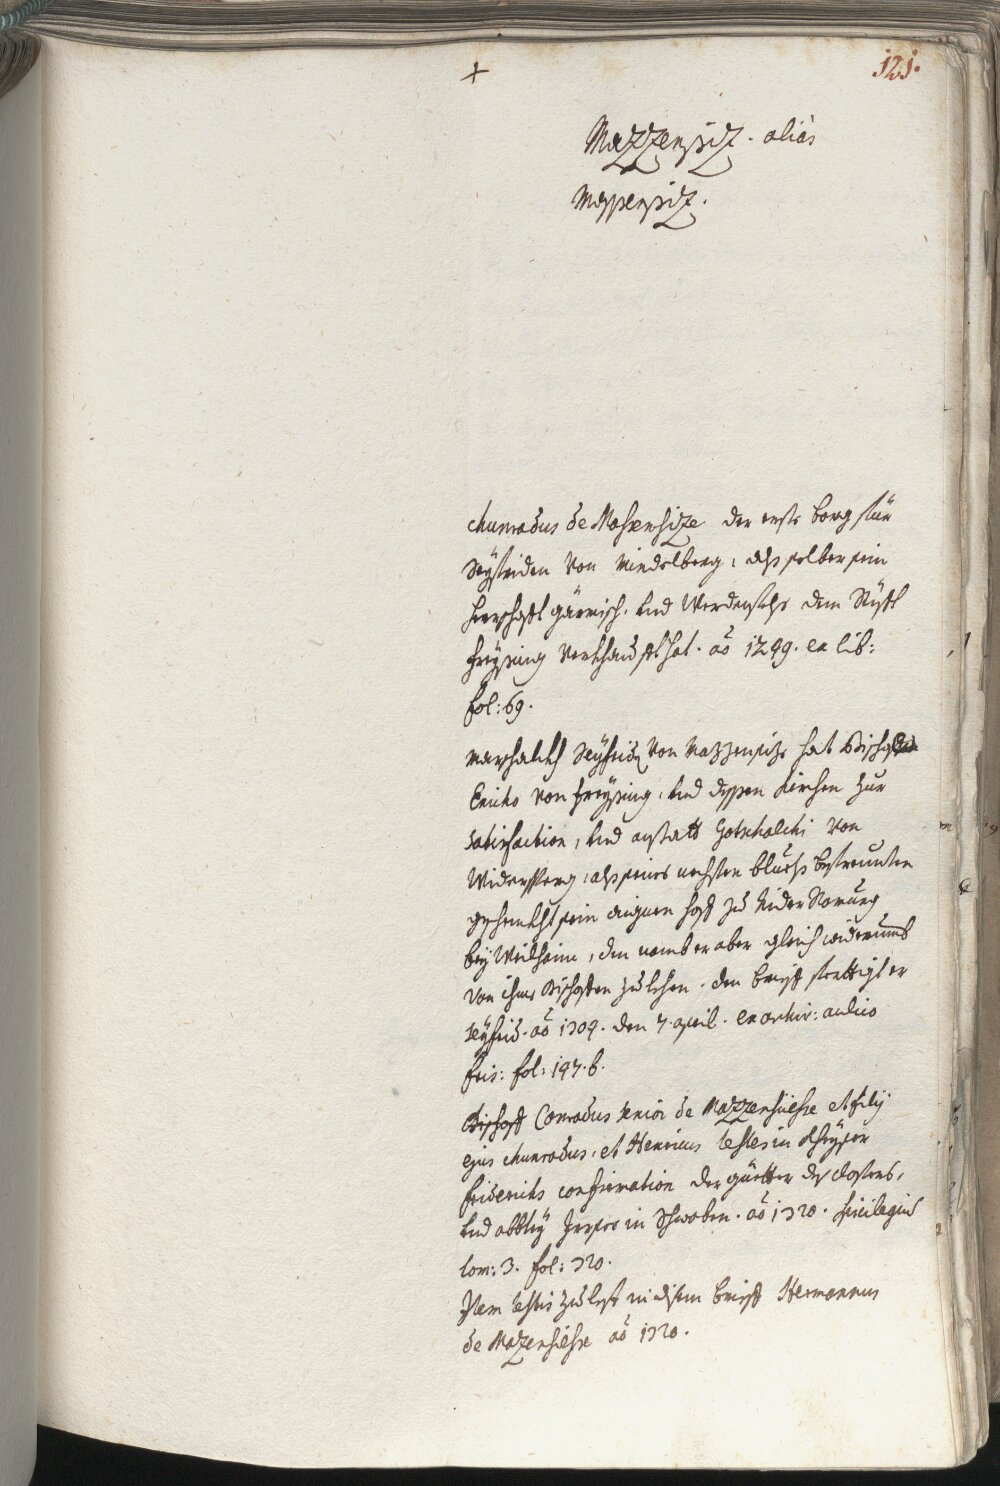 +
121.
Mazzensiz. alias
Massensiz.
Chunradus de Massenhsize der erste borg für
Seyfriden Von Mindelberg, alß selber sein
herrschafft gärmisch. und Werdenfelß dem Styfft
freysing Verkhaufft hat. aö 1299. ex lib:
fol: 69.
Marschalkh Seyfrid Von Mazzensize hat Bischoffen
Enicho Von freysing, und dessen Kirchen zur
satisfaction, und anstatt Gotschalchi Von
Widersperg, alß seines nechsten bluets befreunten
geschenkht sein aignen hoff zu Nider
bey Weilheim, den namb er aber gleich widerumb
von ihme Bischoffen zu lehen. den brieff ferttigt er
Seyfrid. aö 1309. den 7. april. ex archiv: aulico
fris: fol: 197. b.
Bischoff Conradus senior de Mazzenhsielze et filij
ejus Chunradus, et Henricus testes in Khayser
friderichs confirmation der güetter deß closters,
und abbtey Yrsee in Schwaben. aö 1320.
tom: 3. fol: 320.
Item testis zu lest in disem brieff Hermannus
de Mazenhsielze aö 1320.